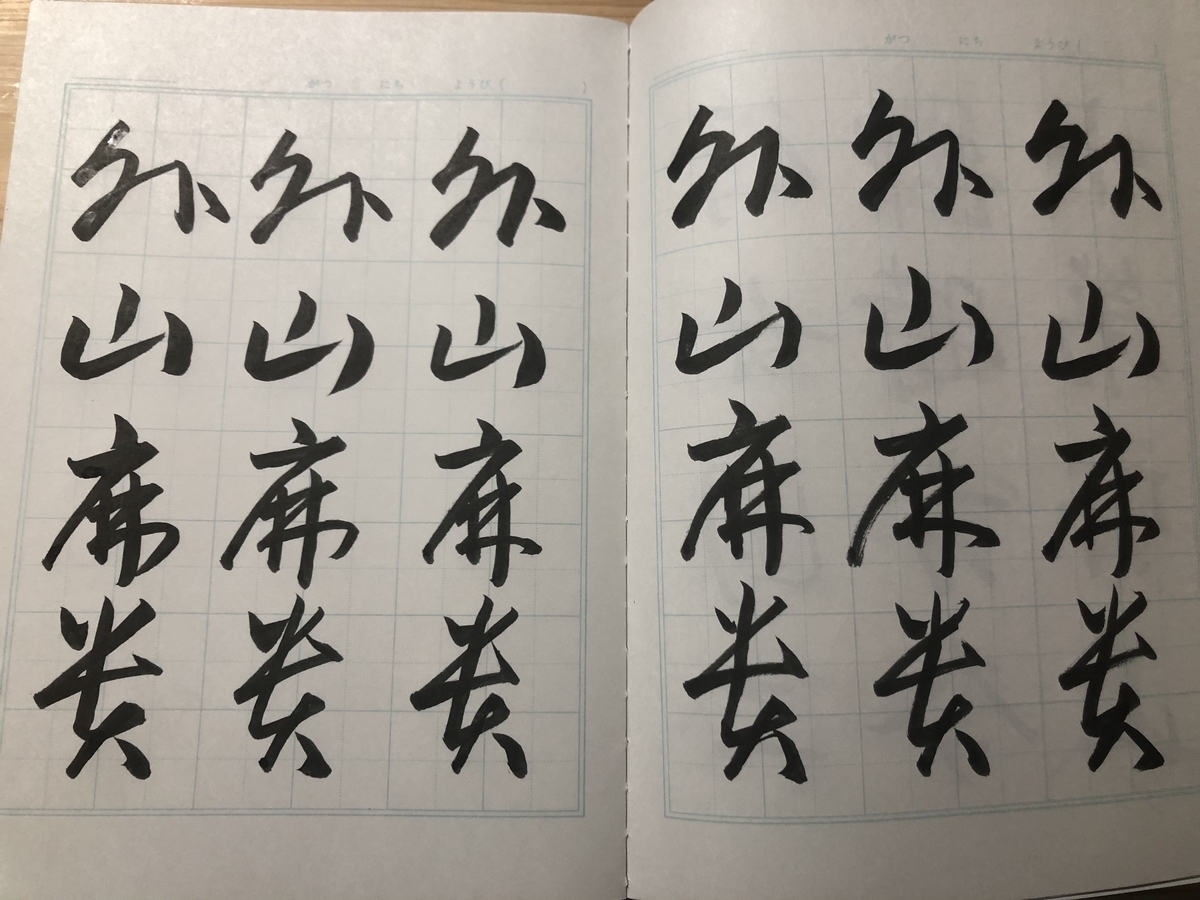 がつ にち ようび( )
外山麻美
外山麻美
外山麻美
がつ にち ようび( )
外山麻美
外山麻美
外山麻美